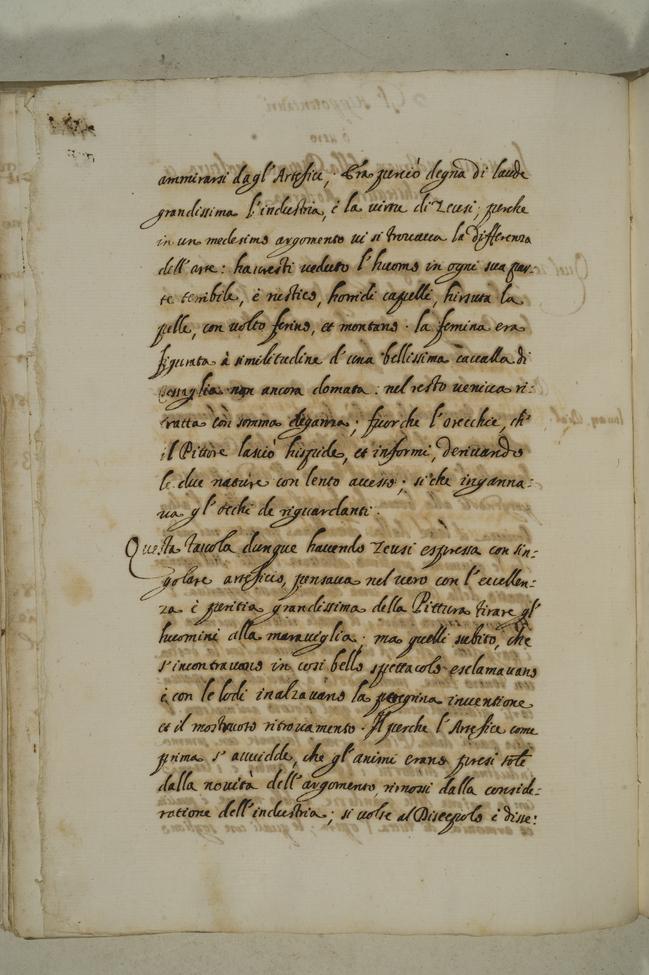 ammirarsi dagl' Artefici, Era perciò degna di laude
grandissima l'industria, è la virtu di Zeusi; perche
in un medesimo argomento vi si trovava la differenza
dell'arte: havresti veduto l'huomo in ogni sua par-
te terribile, è rustico, horridi capelli, hirsuta la
pelle, con volto ferino, et montano. la femina era
figurata à similitudine d'una bellissima cavalla di
Tessaglia non ancora domata: nel resto veniva ri-
tratta con somma eleganza; fuorche l'orecchie, ch'
il Pittore lasciò hispide, et informi, derivando
le due nature con lento accesso; siche inganna-
va gl'occhi de riguardanti.
Questa tavola dunque havendo Zeusi espressa con sin-
golare artificio, pensava nel vero con l'eccellen-
za è peritia grandissima della Pittura tirare gl'
huomini alla maraviglia. ma quelli subito, che
s'incontravano in cosi bello spettacolo esclamavano
è con le lodi inalzavano la peregrina inventione
et il mostruoso ritrovamento. Il perche l'Artefice come
prima s'avvidde, che gl'animi erano presi solo
dalla novità dell'argomento, rimossi dalla conside-
ratione dell'industria; si volse al Discepolo è disse: